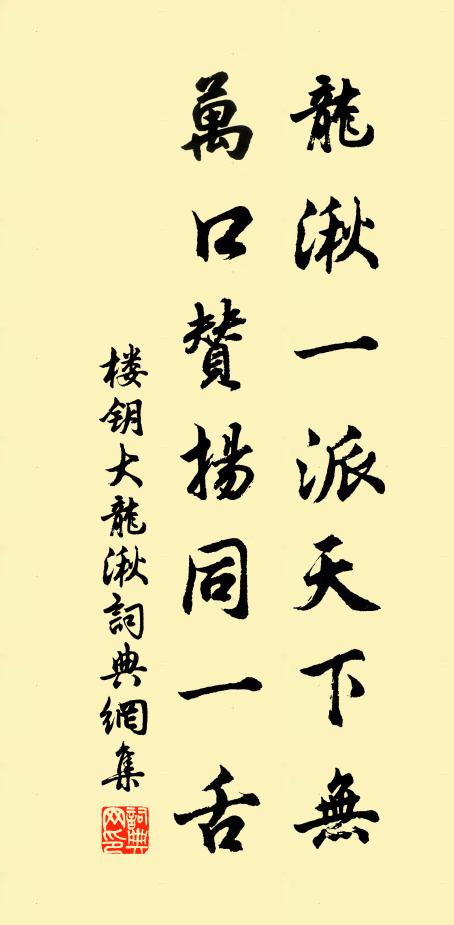 龍湫一派天下無
萬口贊揚同一舌
楼钥大龍湫詞典網集
詞典網印